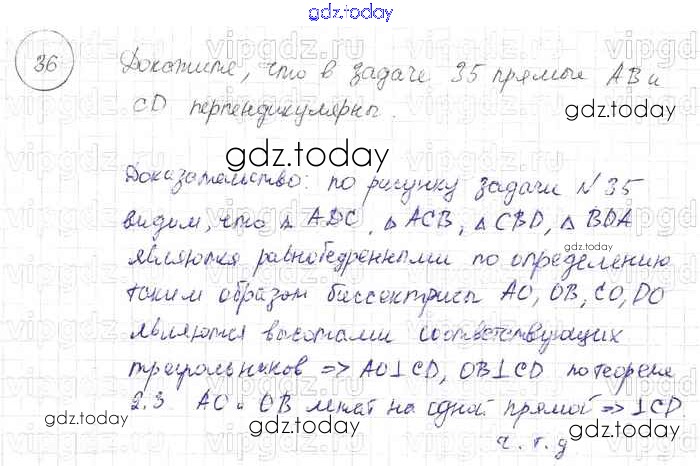 gdz.today
36
Докажите, что в задаче 35 прямые AB и
CD перпендикулярны.
gdz.today
gdz.today
Доказательство: по рисунку задачи N 35
видим, что △ ADC, △ ACB, △ CBD, △ BDA
gdz.today
являются равнобедренными по определению
таким образом биссектрисы AO, OB, CO, DO
являются высотами соответствующих
треугольников => AO⊥CD, OB⊥CD по теореме
2.3. AO и OB лежат на одной прямой => ⊥CD.
gdz.today
gdz.today
ч. т. д